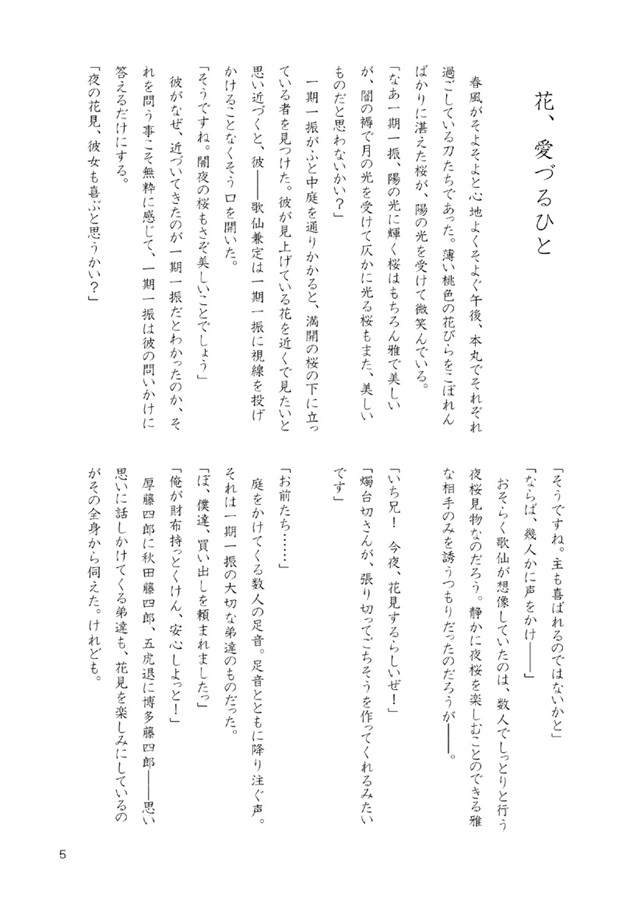 花、愛づるひと
春風がそよそよと心地よくそよぐ午後、本丸でそれぞれ
過ごしている刀たちであった。薄い桃色の花びらをこぼれん
ばかりに湛えた桜が、陽の光を受けて微笑んでいる。
「なあ一期一振、陽の光に輝く桜はもちろん雅で美しい
が、闇の褥で月の光を受けて仄かに光る桜もまた、美しい
ものだと思わないかい？」
一期一振がふと中庭を通りかかると、満開の桜の下に立っ
ている者を見つけた。彼が見上げている花を近くで見たいと
思い近づくと、彼――歌仙兼定は一期一振に視線を投げ
かけることなくそう口を開いた。
「そうですね。闇夜の桜もさぞ美しいことでしょう」
彼がなぜ、近づいてきたのが一期一振だとわかったのか、そ
れを問う事こそ無粋に感じて、一期一振は彼の問いかけに
答えるだけにする。
「夜の花見、彼女も喜ぶと思うかい？」
「そうですね。主も喜ばれるのではないかと」
「ならば、幾人かに声をかけ――」
おそらく歌仙が想像していたのは、数人でしっとりと行う
夜桜見物なのだろう。静かに夜桜を楽しむことのできる雅
な相手のみを誘うつもりだったのだろうが――。
「いち兄！　今夜、花見するらしいぜ！」
「燭台切さんが、張り切ってごちそうを作ってくれるみたい
です」
「お前たち……」
庭をかけてくる数人の足音。足音とともに降り注ぐ声。
それは一期一振の大切な弟達のものだった。
「ぼ、僕達、買い出しを頼まれましたっ」
「俺が財布持っとくけん、安心しよっと！」
厚藤四郎に秋田藤四郎、五虎退に博多藤四郎――思い
思いに話しかけてくる弟達も、花見を楽しみにしているの
がその全身から伺えた。けれども。
5